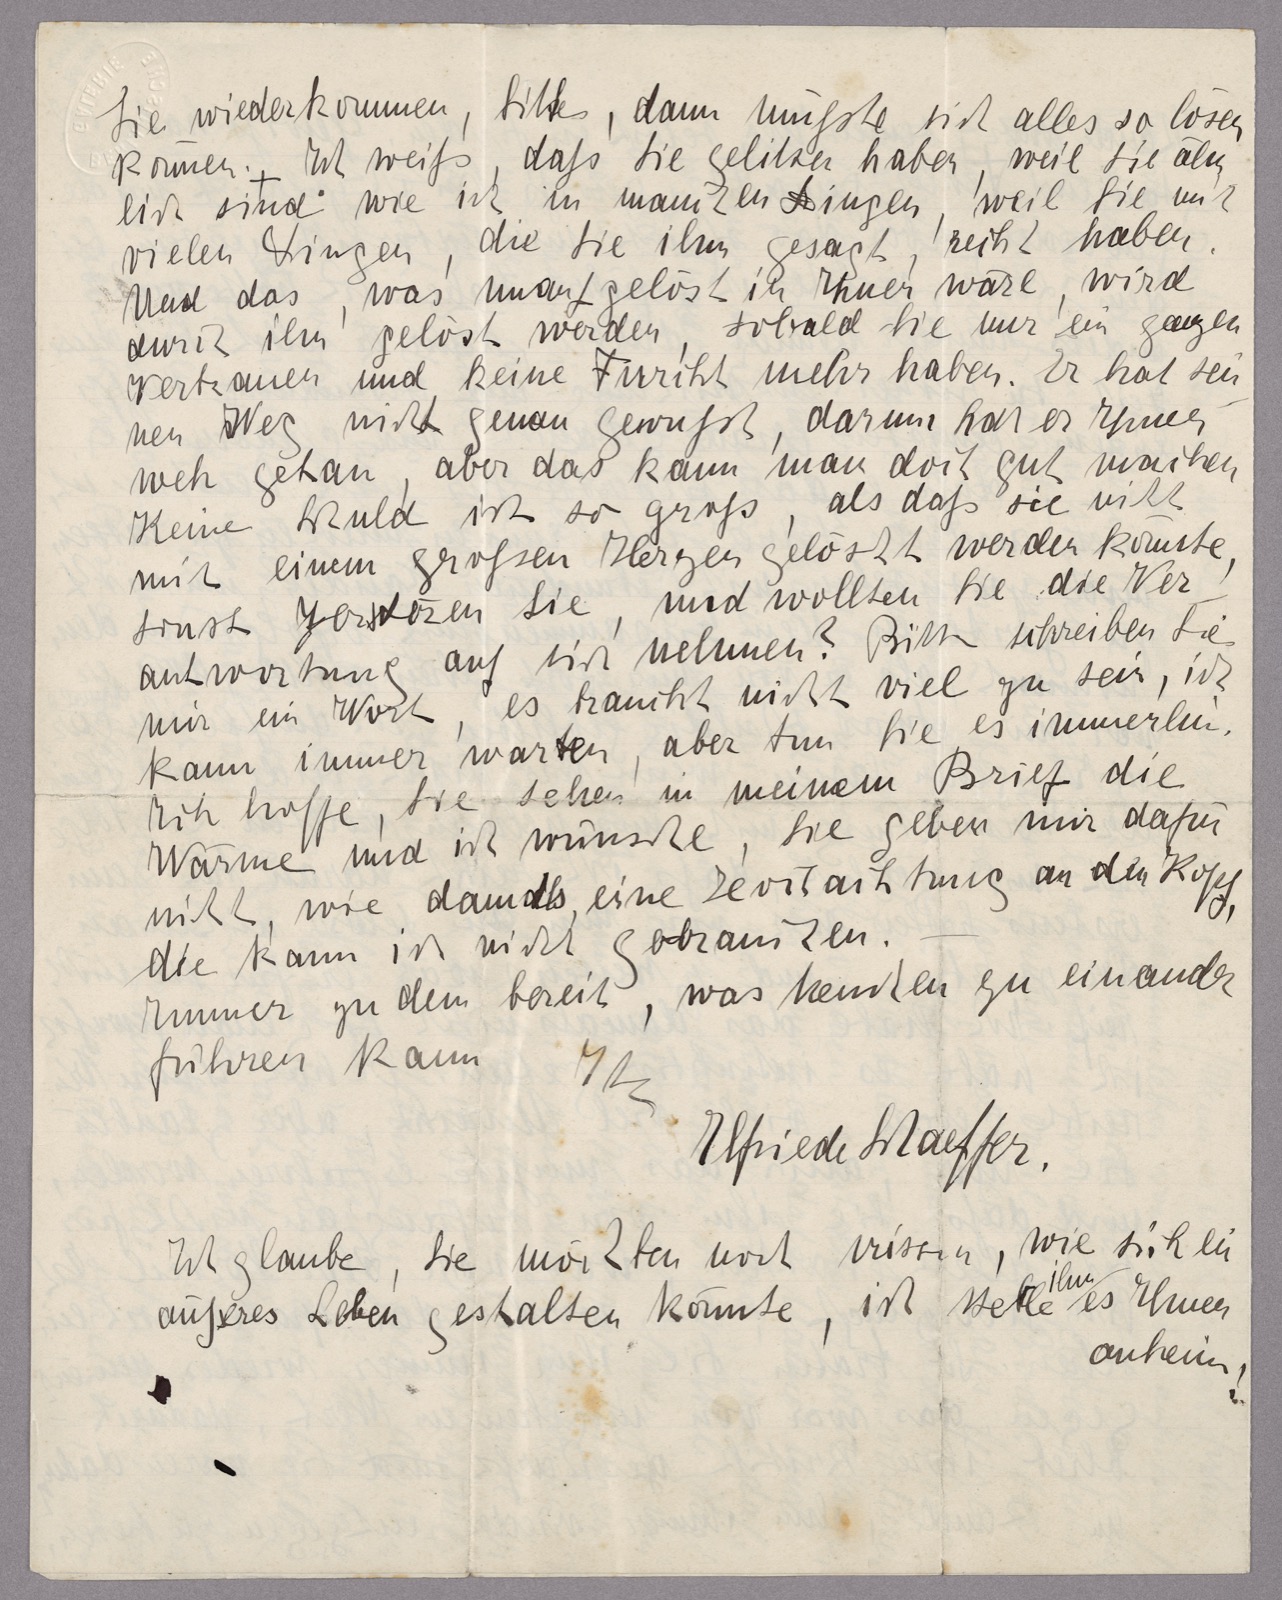 Sie wiederkommen, bitte, dann müsste sich alles so lösen
können. + Ich weiss, dass Sie gelitten haben, weil Sie ähn
lich sind wie ich in manchen Dingen, weil Sie mit
vielen Dingen, die Sie ihm gesagt, recht haben.
Und das, was unaufgelöst in Ihnen wäre, wird
durch ihn gelöst werden, sobald Sie nur ein ganzen
Vertrauen und keine Furcht mehr haben. Er hat sei
nen Weg nicht genau gewusst, darum hat er Ihnen
weh getan, aber das kann man doch gut machen
Keine Schuld ist so gross, als dass sie nicht
mit einem grossen Herzen gelöscht werden könnte,
sonst Sie, und wollten Sie die Ver-
antwortung auf sich nehmen? Bitte schreiben Sie
mir ein Wort, es braucht nicht viel zu sein, ich
kann immer warten, aber tun Sie es immerhin.
Ich hoffe, Sie sehen in meinem Brief die
Wärme und ich wünsche, Sie geben mir dafür
nicht, wie damals, eine Hochachtung an den Kopf,
die kann ich nicht gebrauchen. —
Immer zu dem bereit, was Menschen zu einander
führen kann Ihre
Elfriede Schaeffer.
Ich glaube, Sie möchten noch wissen, wie sich ein
äusseres Leben gestalten könnte, ich stelle ihm es Ihnen
anheim!